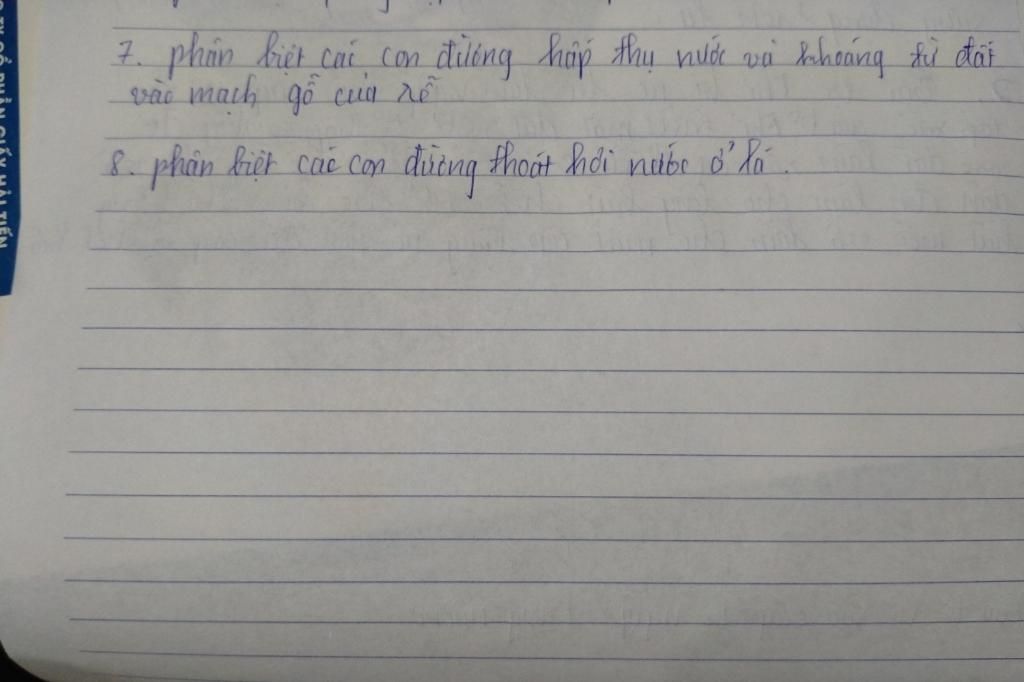 7. phân biệt các con đường hấp thụ nước và khoáng từ đất
vào mạch gỗ của rễ
8. phân biệt các con đường thoát hơi nước ở lá.
CỔ PHẦN GIẤY HẢI TIẾN